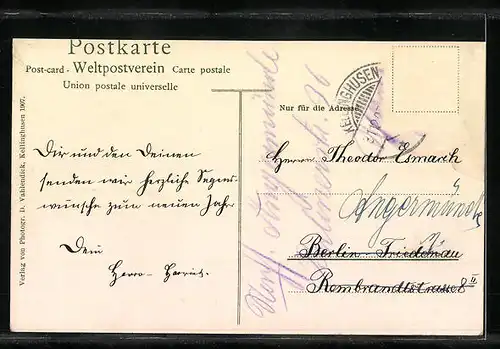 Postkarte
Post-card - Weltpostverein Carte postale
Union postale universelle
Nur für die Adresse
KELLINGHUSEN
Dir und den Deinen
senden wir herzliche Segens-
wünsche zum neuen Jahr
Dein
Verlag von Photogr. D. Vahlendick, Kellinghusen 1907.
Herrn Theodor Esmarch
Angermünde
Berlin-Friedenau
Rembrandtstrasse 8 II
Angermünde
36